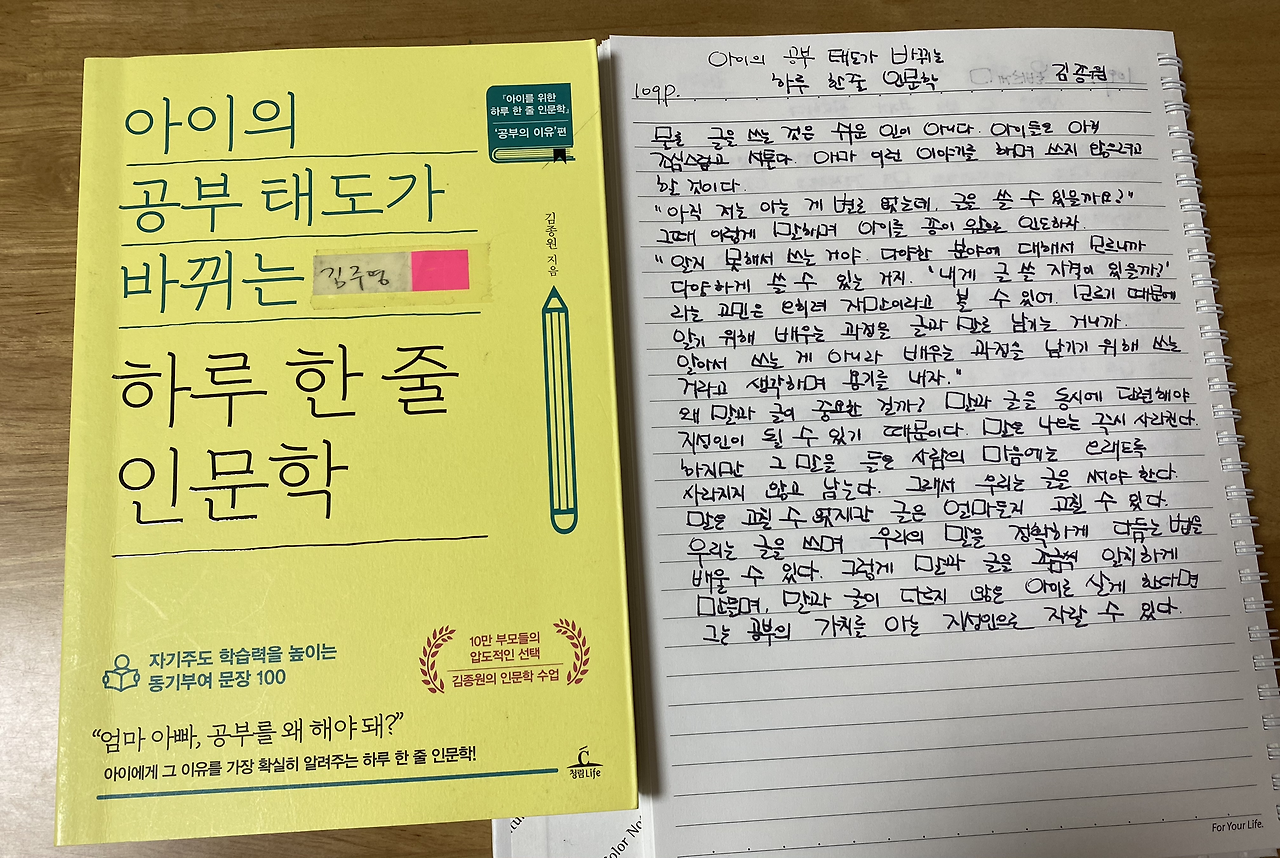 아이의
공부 태도가
바뀌는
하루 한 줄
인문학
『아이를 위한
하루 한 줄 인문학』
'공부의 이유'편
김종원 지음
김주영
자기주도 학습력을 높이는
동기부여 문장 100
10만 부모들의
압도적인 선택
김종원의 인문학 수업
“엄마 아빠, 공부를 왜 해야 돼?”
아이에게 그 이유를 가장 확실히 알려주는 하루 한 줄 인문학!
청림Life
아이의 공부 태도가 바뀌는
하루 한줄 인문학 김종원
109p.
물론 글을 쓰는 것은 쉬운 일이 아니다. 아이들은 아직
조심스럽고 서툴다. 아마 이런 이야기를 하며 쓰지 않으려고
할 것이다.
"아직 저는 아는 게 별로 없는데, 글을 쓸 수 있을까요?"
그때 이렇게 말하며 아이를 종이 앞으로 인도하자.
"알지 못해서 쓰는 거야. 다양한 분야에 대해서 모르니까
다양하게 쓸 수 있는 거지. '내게 글 쓸 자격이 있을까?'
라는 고민은 오히려 자만이라고 볼 수 있어. 모르기 때문에
알기 위해 배우는 과정을 글과 말로 남기는 거니까.
알아서 쓰는 게 아니라 배우는 과정을 남기기 위해 쓰는
거라고 생각하며 용기를 내자."
왜 말과 글이 중요한 걸까? 말과 글을 동시에 단련해야
지성인이 될 수 있기 때문이다. 말은 나오는 즉시 사라진다.
하지만 그 말을 들은 사람의 마음에는 오래도록
사라지지 않고 남는다. 그래서 우리는 글을 써야 한다.
말은 고칠 수 없지만 글은 얼마든지 고칠 수 있다.
우리는 글을 쓰며 우리의 말을 정확하게 다듬는 법을
배울 수 있다. 그렇게 말과 글을 조금씩 일치하게
만들며, 말과 글이 다르지 않은 아이로 살게 한다면
그는 공부의 가치를 아는 지성인으로 자랄 수 있다.
For Your Life.